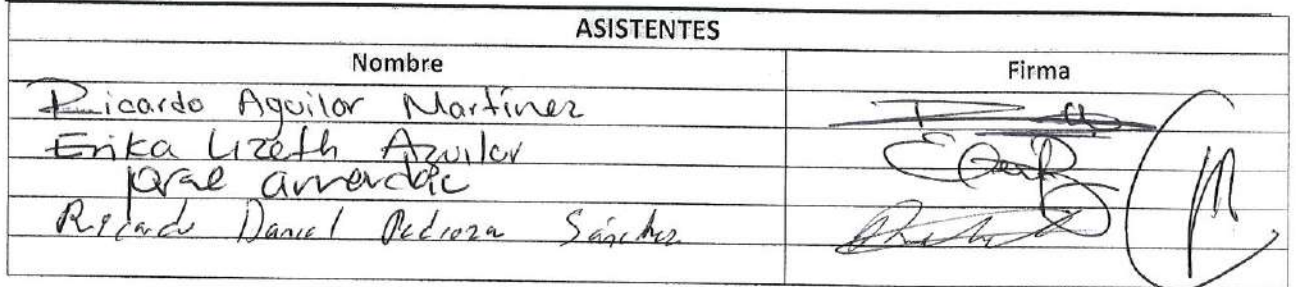 ASISTENTES
Nombre Firma
Ricardo Aguilar Martínez
Erika Lizeth Aguilar
Jorge
Ricardo Daniel Pedroza Sánchez